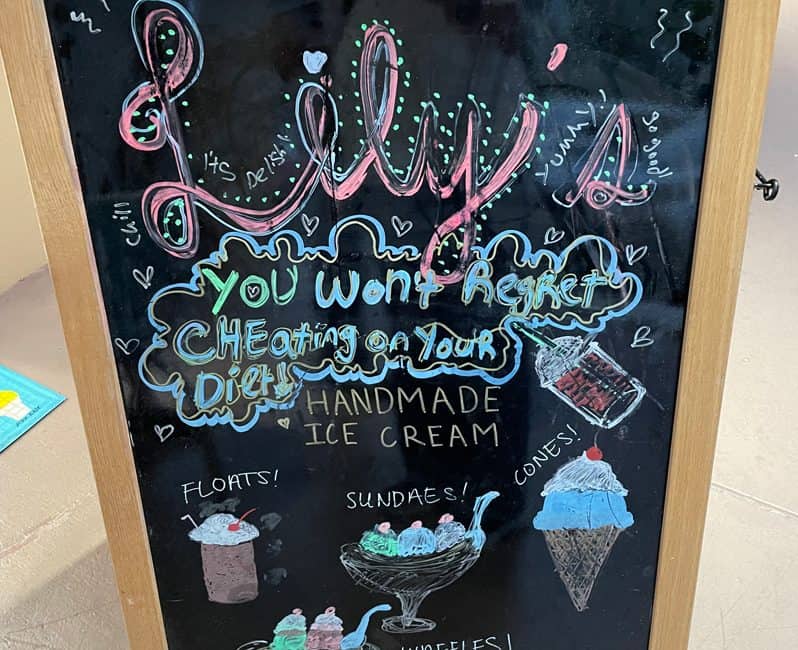 Lily's
Its Delish!
Yummy!
Chill
You Won't Regret
CHEating on Your
Diet!
HANDMADE
ICE CREAM
FLOATS!
SUNDAES!
CONES!
WAFFLES!